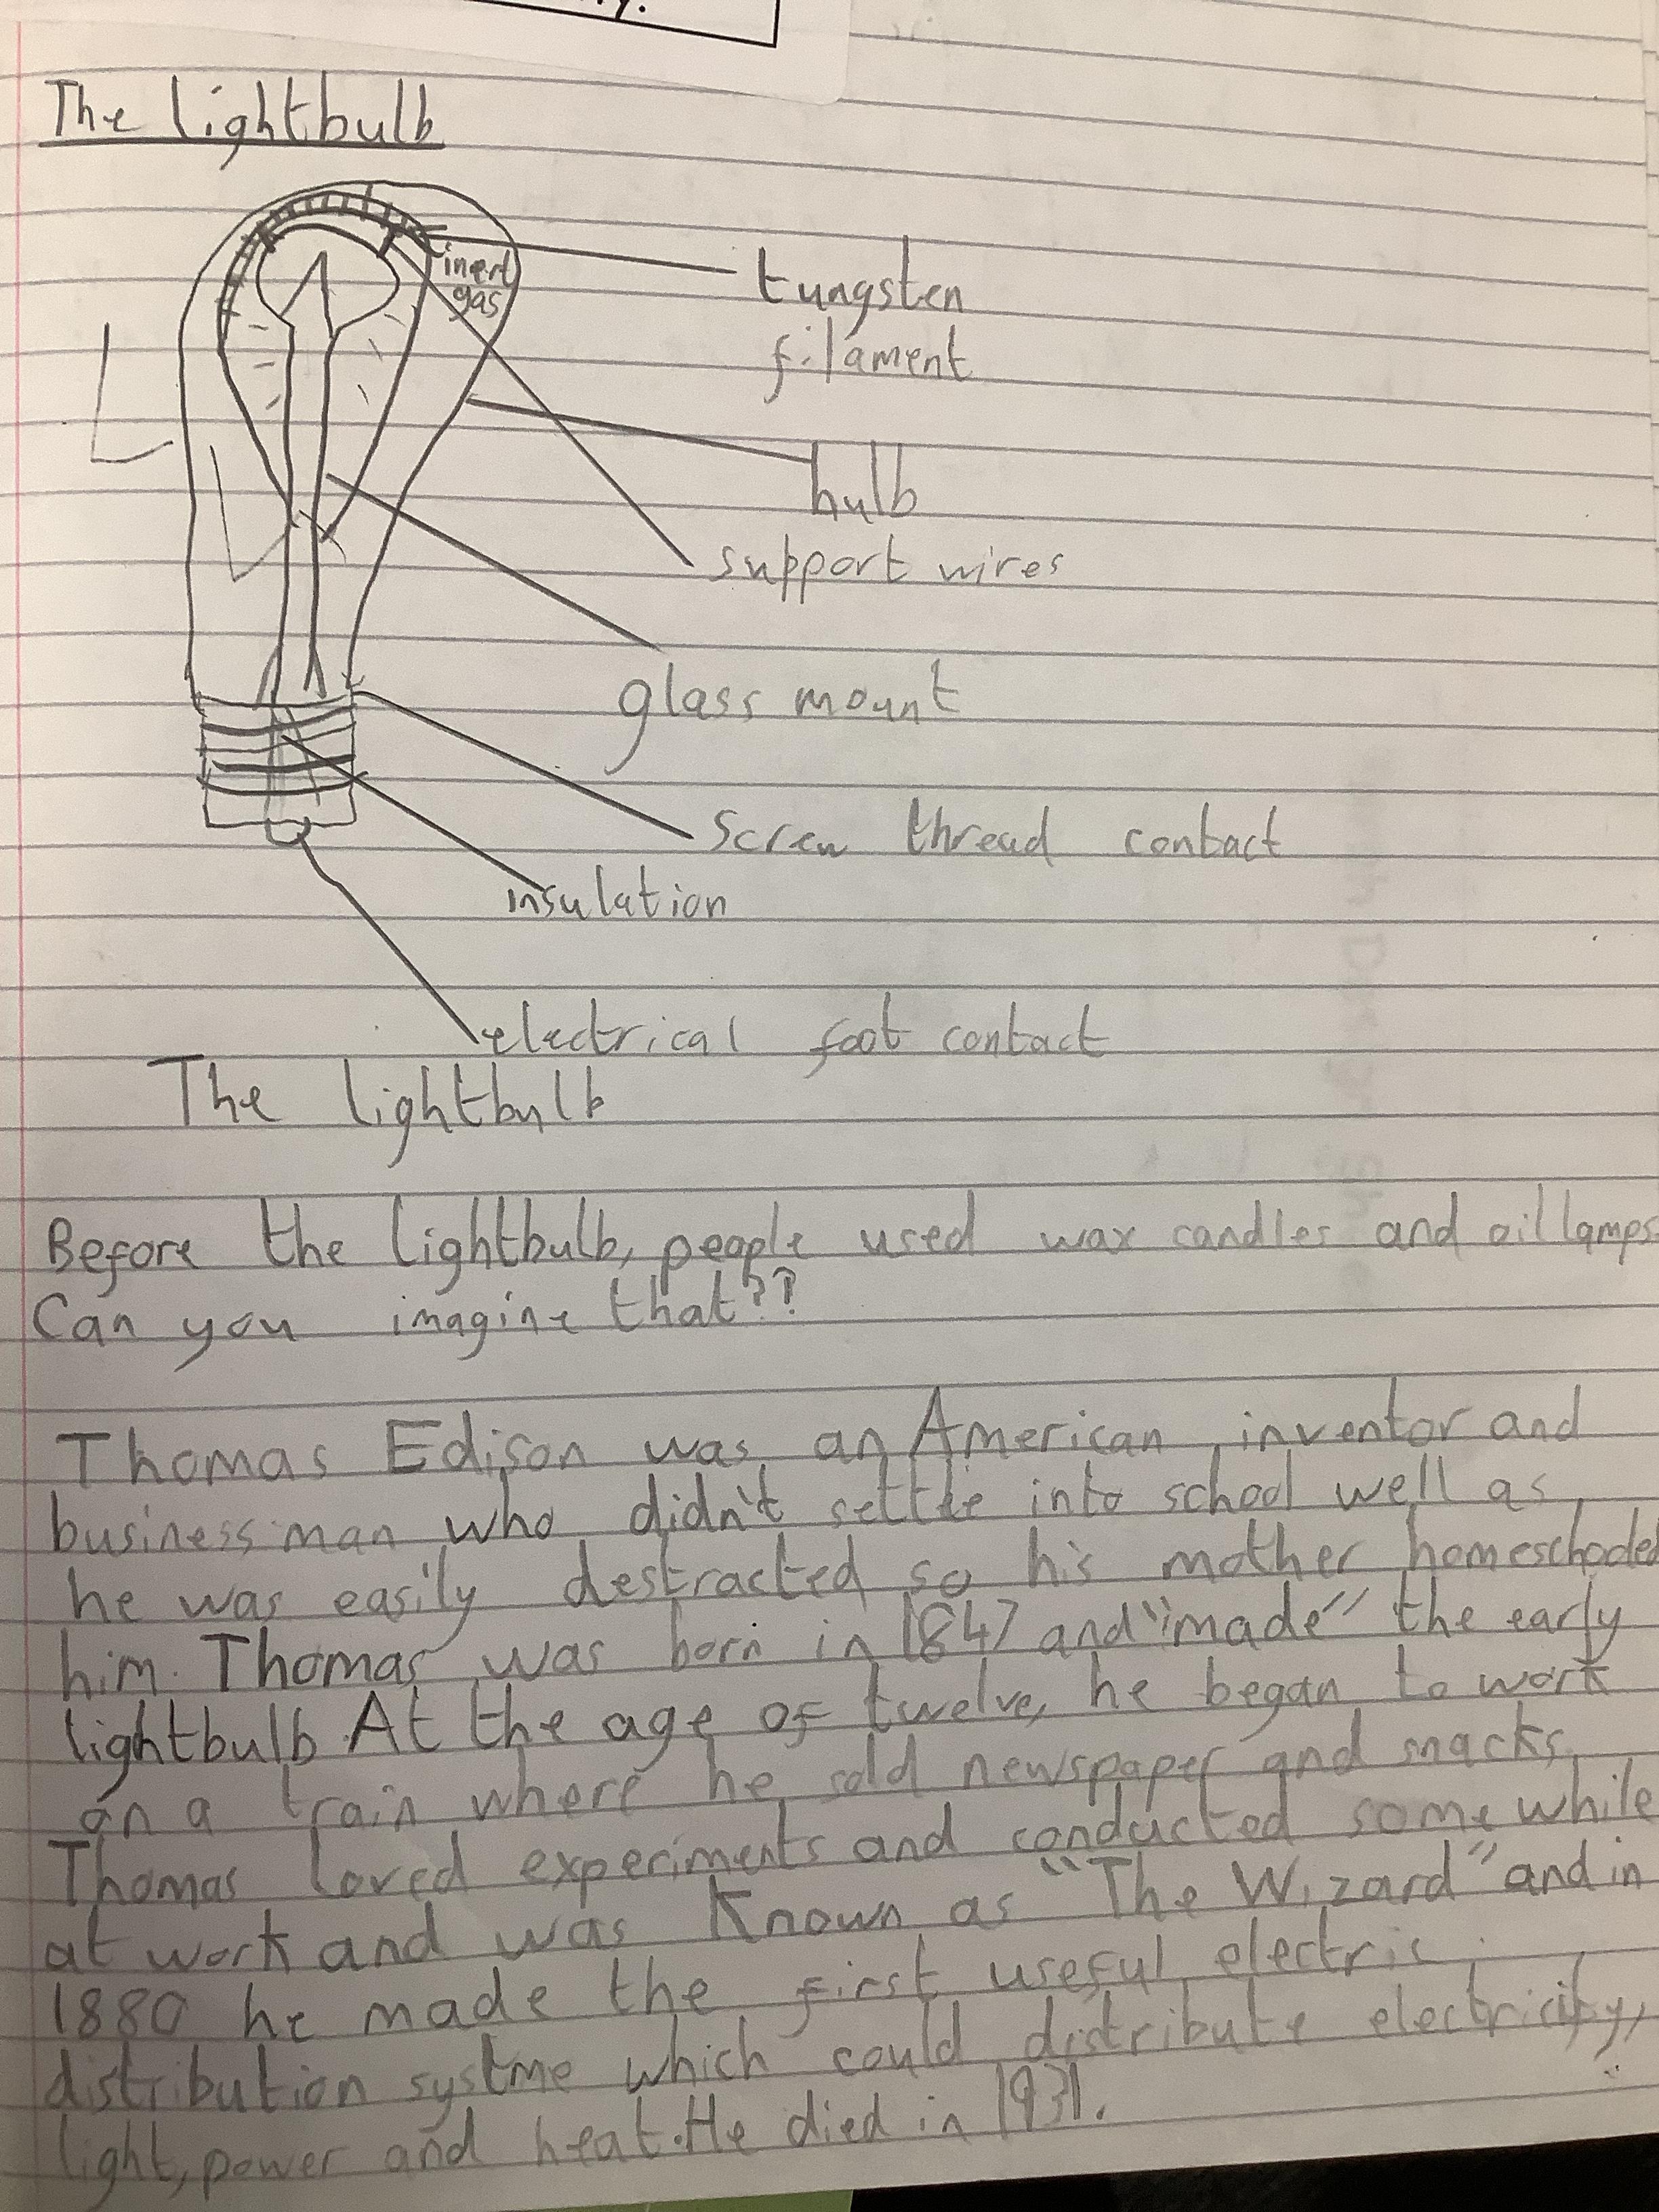 The lightbulb
inert
gas
tungsten
filament
bulb
support wires
glass mount
Screw thread contact
insulation
electrical foot contact
The lightbulb
Before the lightbulb, people used wax candles and oil lamps.
Can you imagine that??
Thomas Edison was an American inventor and
businessman who didn't settle into school well as
he was easily destracted so his mother homeschooled
him. Thomas was born in 1847 and "made" the early
lightbulb. At the age of twelve, he began to work
on a train where he sold newspaper and snacks.
Thomas loved experiments and conducted some while
at work and was known as "The Wizard" and in
1880 he made the first useful electric
distribution systme which could distribute electricity,
light, power and heat. He died in 1931.